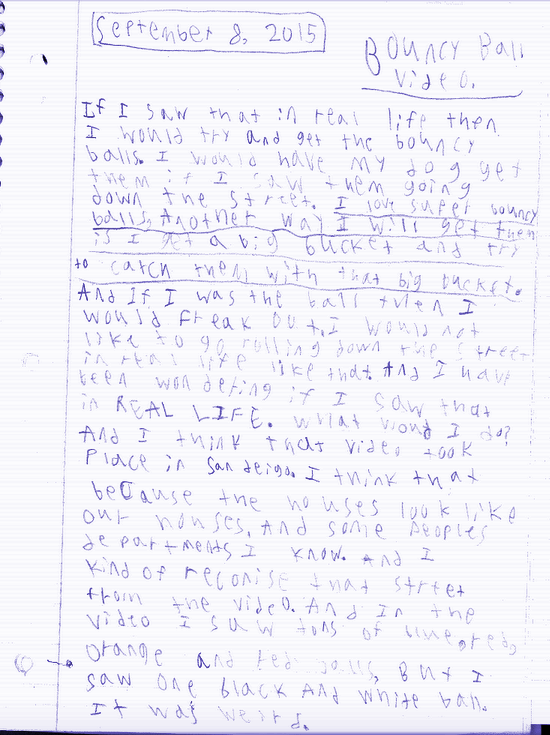 September 8, 2015
Bouncy Ball
Video.
If I saw that in real life then
I would try and get the bouncy
balls. I would have my dog get
them if I saw them going
down the street. I love super bouncy
balls. Another way I will get them
is I get a big bucket and try
to catch them with that big bucket.
And If I was the ball then I
would freak out. I would not
like to go rolling down the street
in real life like that. And I have
been wondering if I saw that
in REAL LIFE. What would I do?
And I think that video took
Place in San deigo. I think that
because the houses look like
our houses. And some peoples
departments I know. And I
kind of reconise that street
from the video. And In the
video I saw tons of green,
orange and red balls, But I
saw one black And white ball.
It was weird.